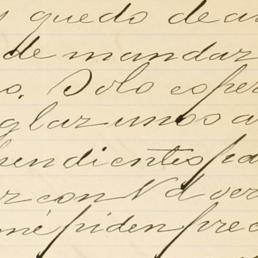 y quedo de a
de mandar
s. Solo esper
glar unos a
pendientes pa
r con Vd ver
me piden prec